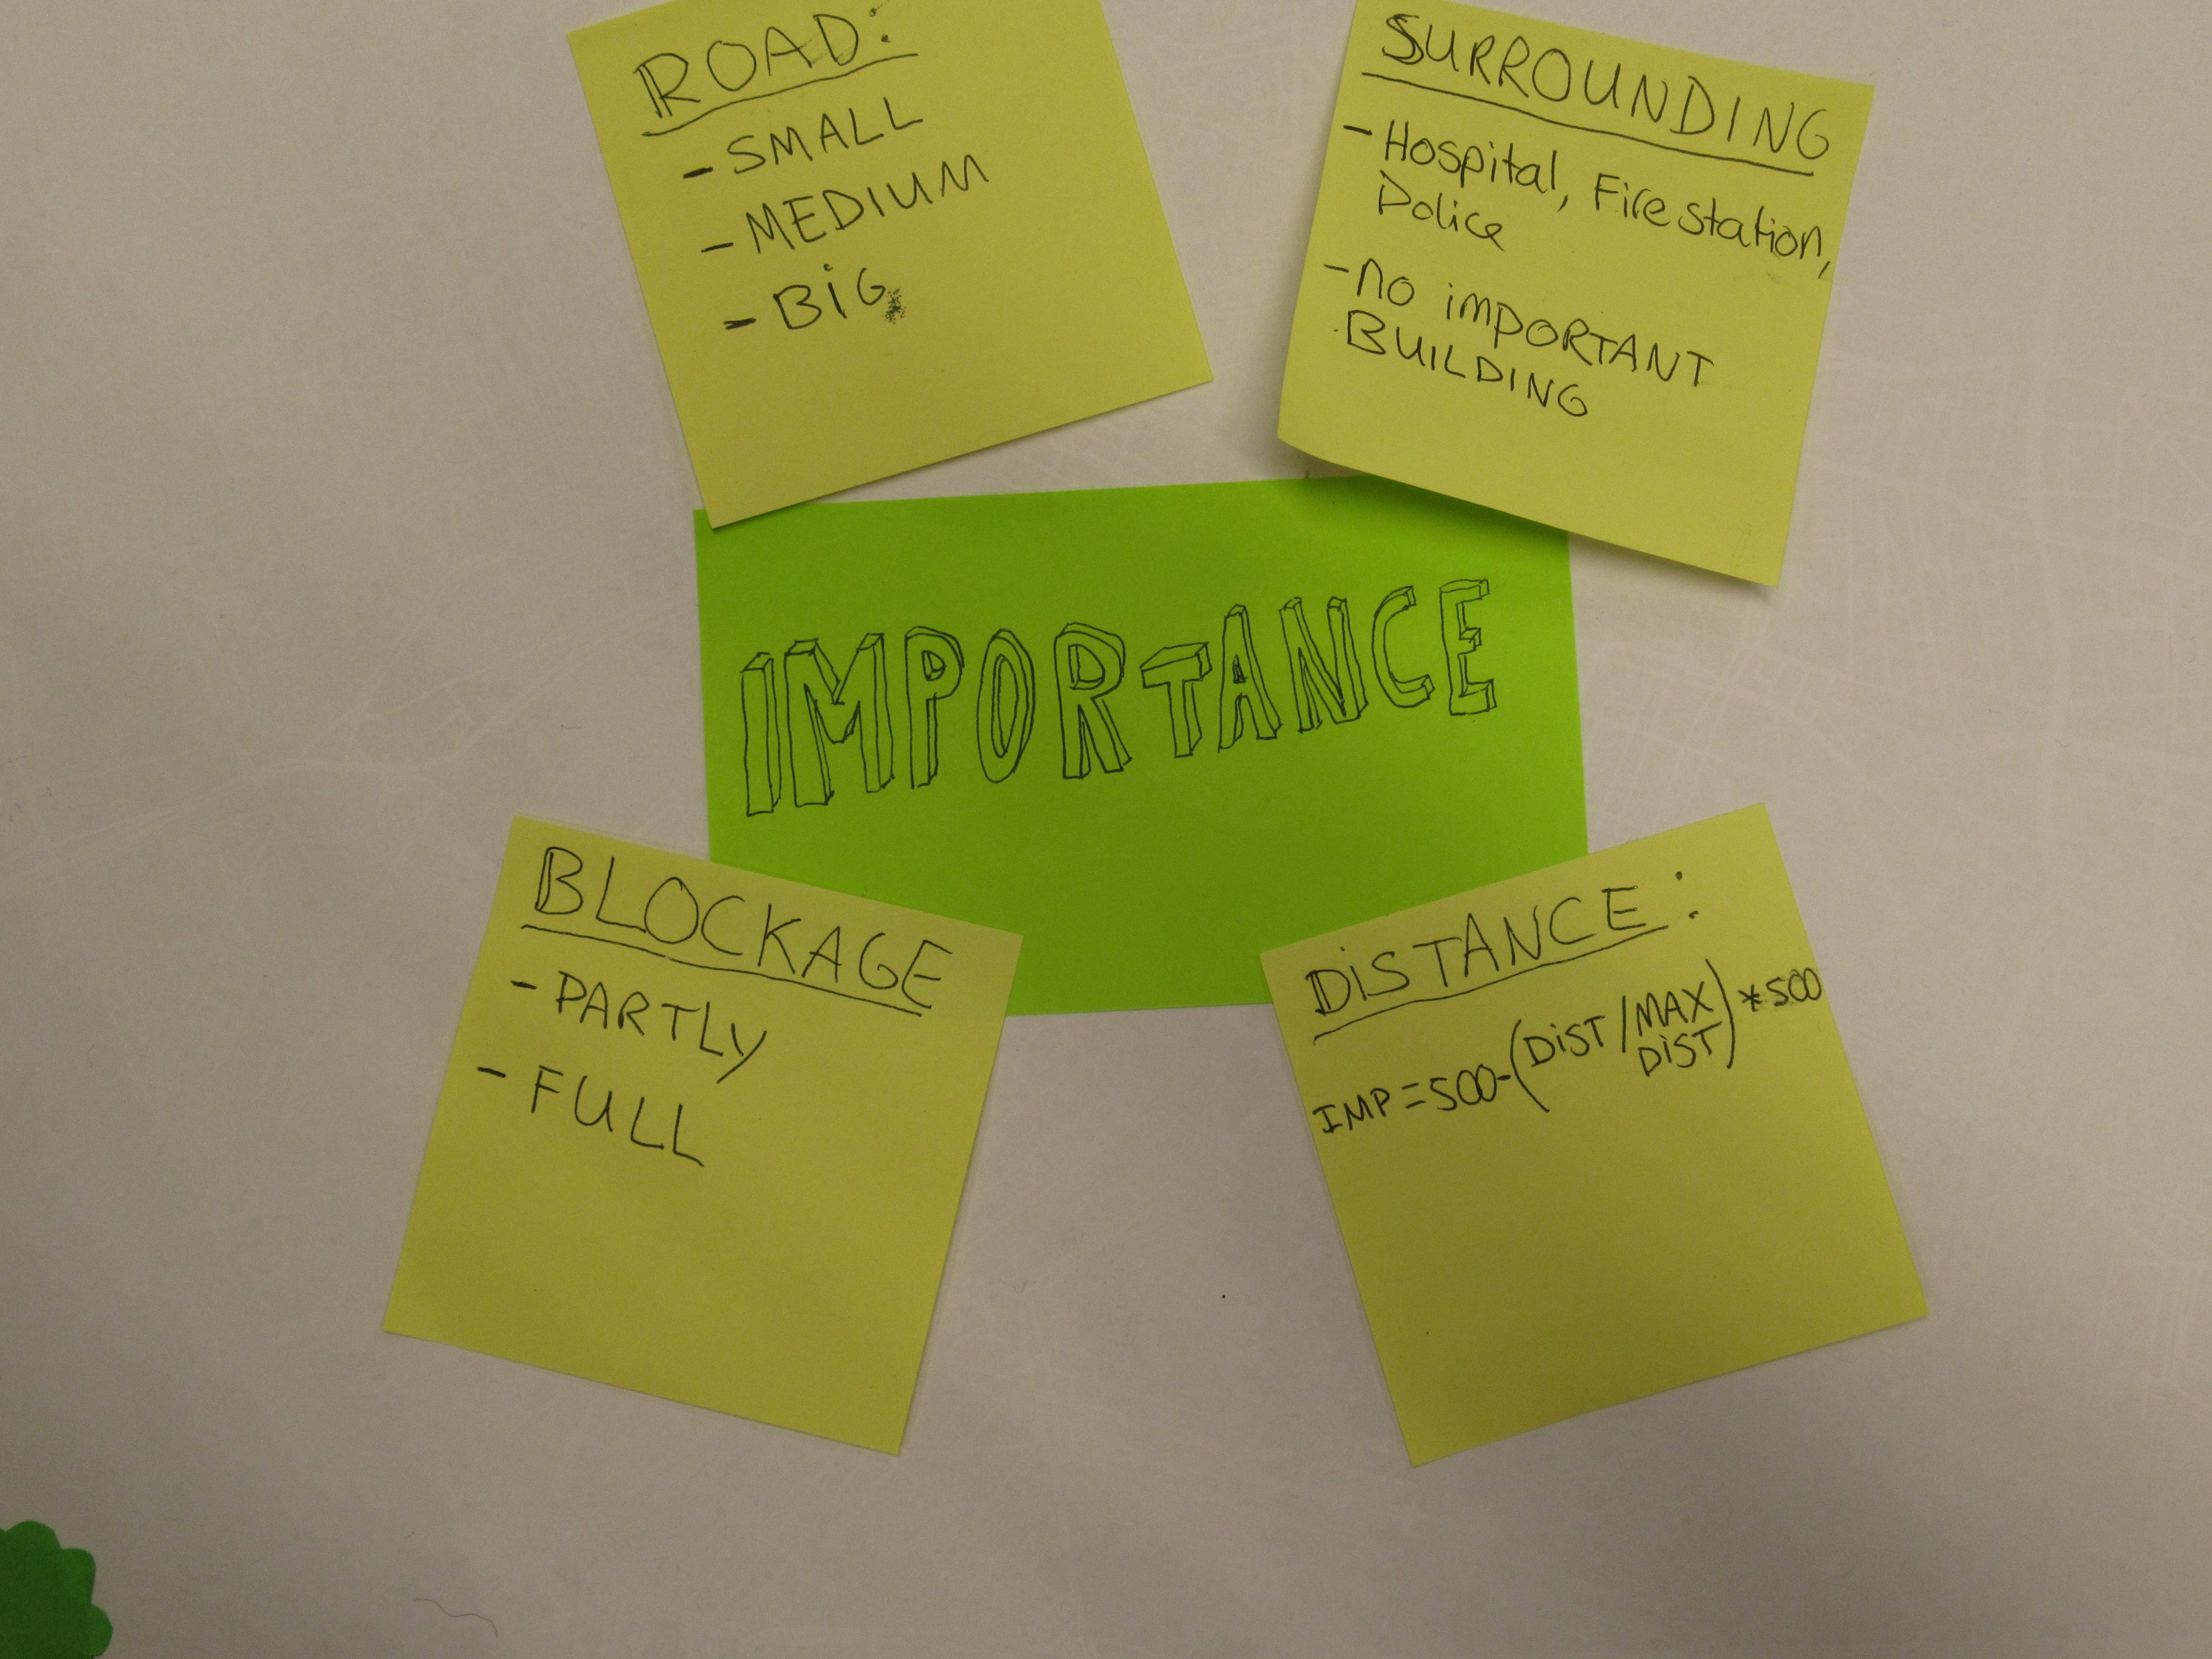 ROAD:
- SMALL
- MEDIUM
- BiG
SURROUNDING
- Hospital, Fire station,
Police
- no imPORTANT
BUILDING
IMPORTANCE
BLOCKAGE
- PARTLY
- FULL
DiSTANCE:
IMP = 500 - (DiST / MAX DiST) * 500